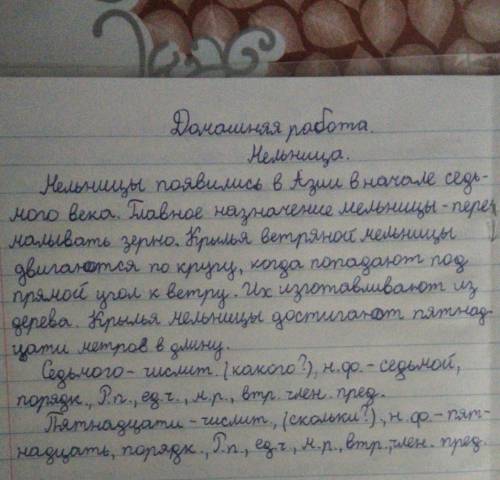 Домашняя работа.
Мельница.
Мельницы появились в Азии в начале седь-
мого века. Главное назначение мельницы - пере
малывать зерно. Крылья ветряной мельницы
двигаются по кругу, когда попадают под
прямой угол к ветру. Их изготавливают из
дерева. Крылья мельницы достигают пятнад
цати метров в длину.
Седьмого - числит. (какого?), н.ф. - седьмой,
порядк., Р.п., ед.ч., м.р., втр. член. пред.
Пятнадцати - числит., (скольки?), н.ф. - пят-
надцать, порядк., Р.п., ед.ч, м.р., втр., член. пред.